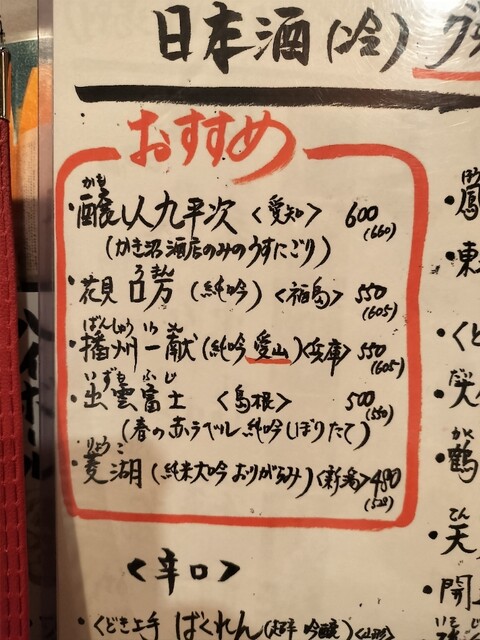 日本酒(冷) グ
おすすめ
かも
・醸し人九平次 <愛知> 600
(660)
(かき沼酒店のみのうすにごり)
ろまん
・花見ロ万 (純吟) <福島> 550
(605)
ばんしゅう いっこん
・播州一献 (純吟 愛山) <兵庫> 550
(605)
いずも ふじ
・出雲富士 <島根> 500
(550)
(春の赤ラベル純吟しぼりたて)
りょうこ
・菱湖 (純米大吟 おりがらみ) <新潟> 480
(528)
<辛口>
・くどき上手 ばくれん (超辛 吟醸) <山形>
ほう
・鳳
・東
・くど
が
・鶴
てん
・天
・開